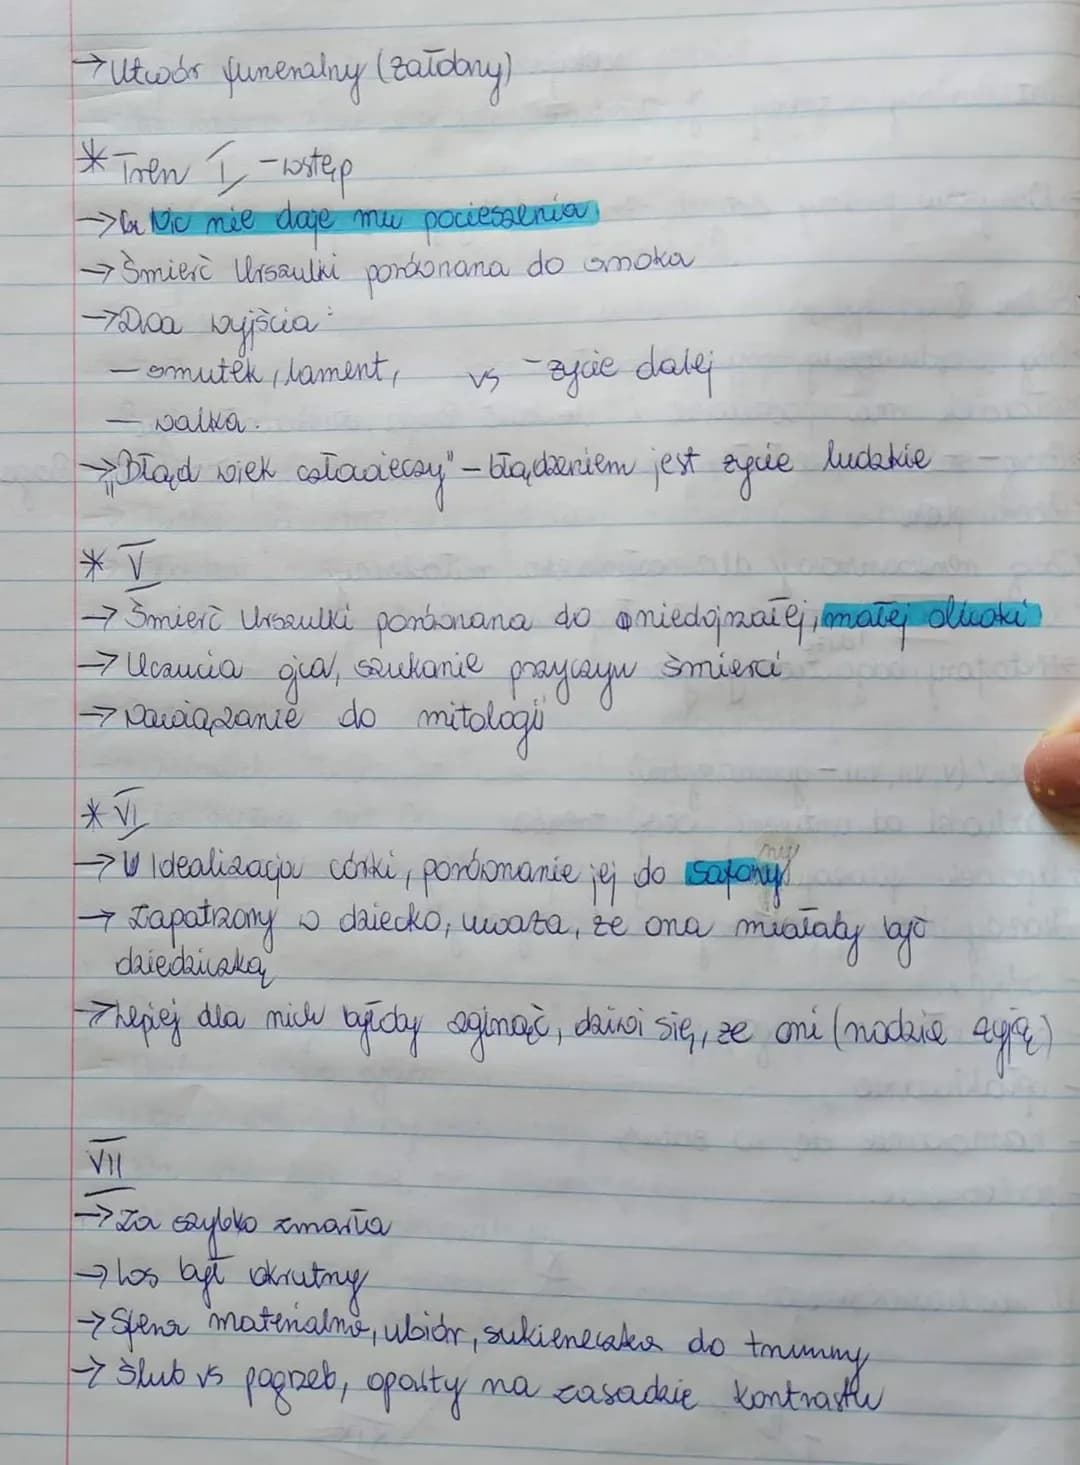 → Utwór funeralny (żałobny)
* Tren I - wstęp
→ Nic nie daje mu pocieszenia
→ Śmierć Urszulki porównana do smoka
→ Dwa wyjścia:
- smutek, lament, vs - życie dalej
- walka.
→ „Błąd wiek człowieczy" - błądzeniem jest życie ludzkie
* V
→ Śmierć Urszulki porównana do niedojrzałej, małej oliwki
→ Uczucia ojca, szukanie przyczyn śmierci
→ Nawiązanie do mitologii
* VI
→ Idealizacja córki, porównanie jej do Safony
→ Zapatrzony w dziecko, uważa, że ona miałaby być
dziedziczką
→ Lepiej dla nich byłoby zginąć, dziwi się, że oni (rodzice żyją)
VII
→ Za szybko zmarła
→ Los był okrutny
→ Sfera materialna, ubiór, sukieneczka do trumny
→ Ślub vs pogrzeb, oparty na zasadzie kontrastu